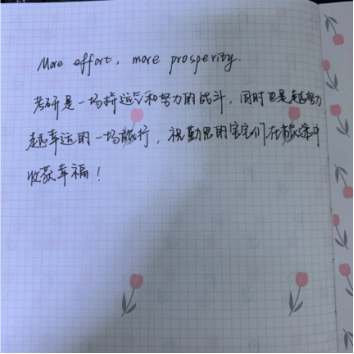 More effort, more prosperity.
考研是一场拼运气和努力的战斗，同时也是越努力
越幸运的一场旅行，祝勤思的宝宝们在旅途中
收获幸福！